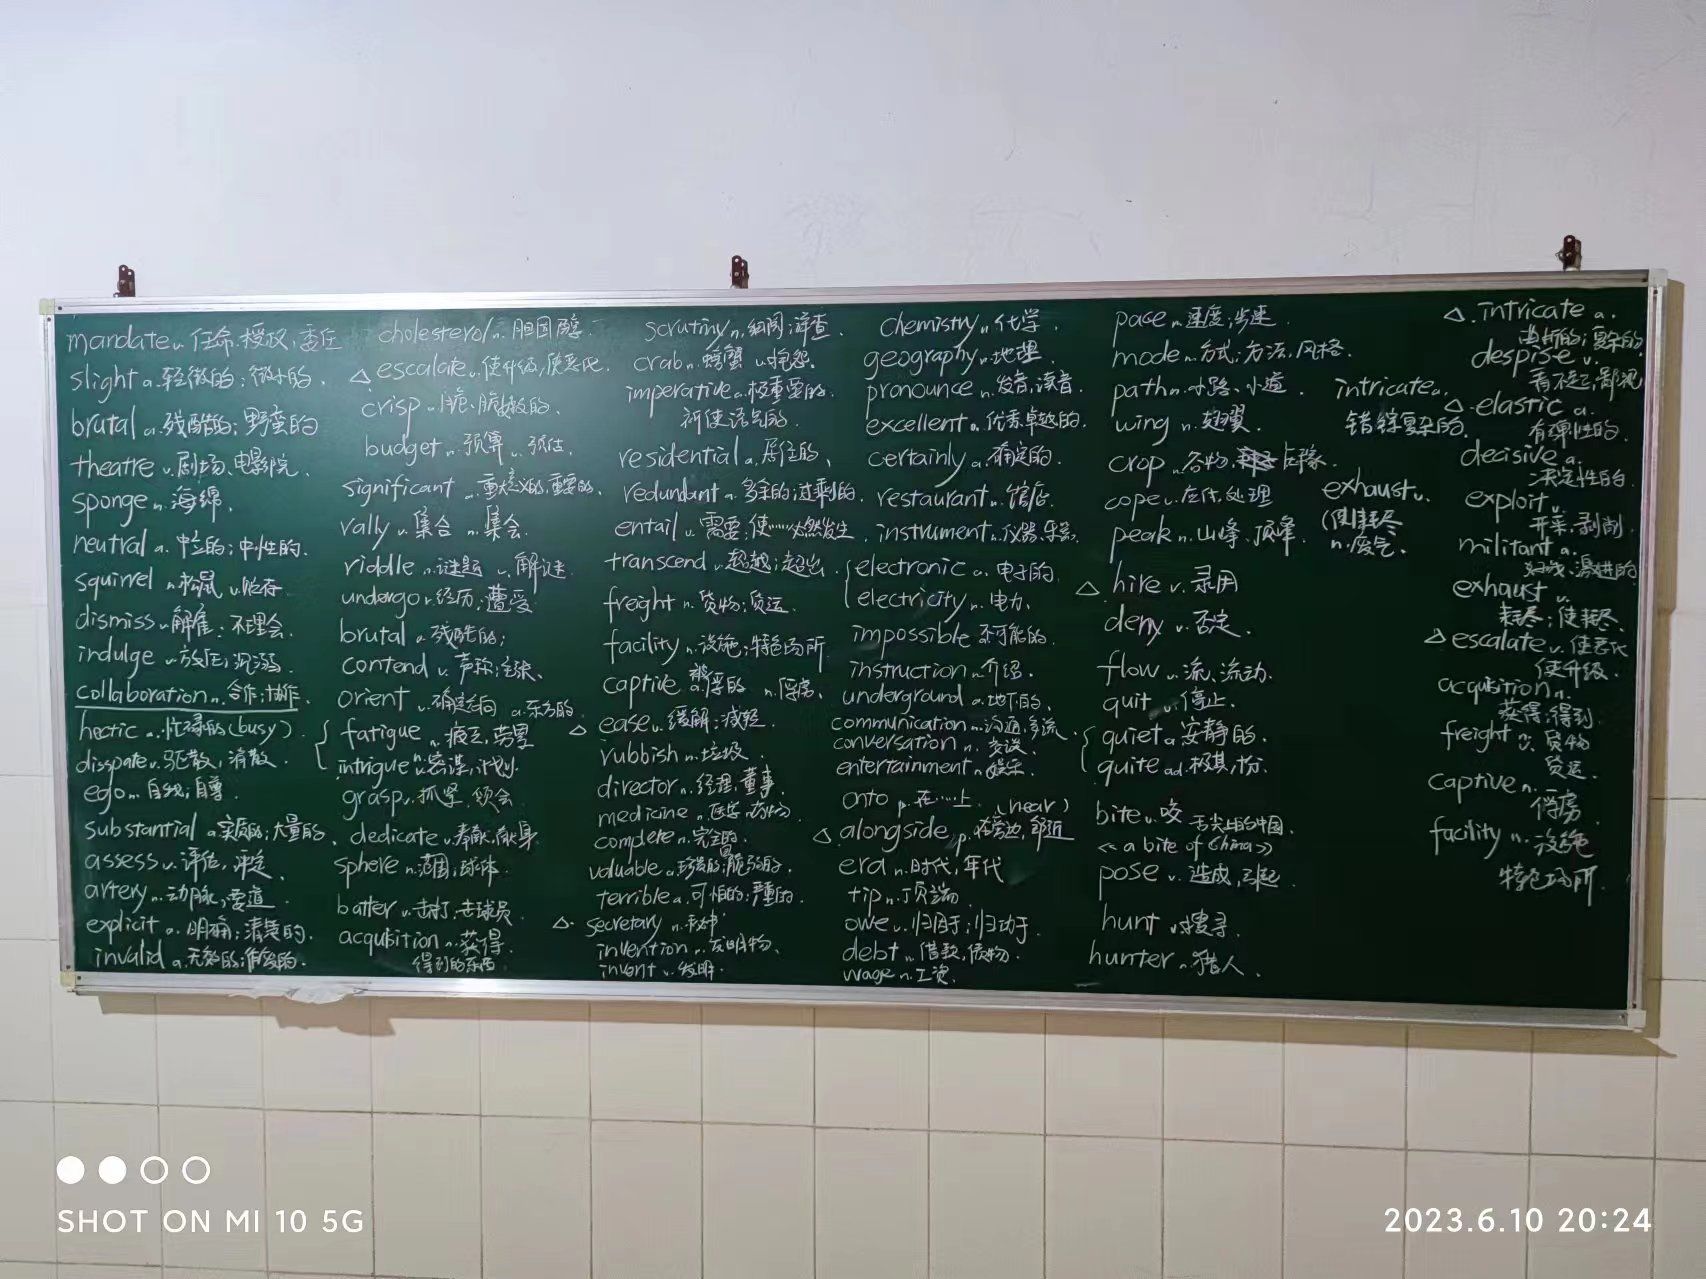 mandate v. 任命.授权,委任
slight a. 轻微的;微小的.
brutal a. 残酷的;野蛮的
theatre v.剧场.电影院.
sponge n.海绵.
neutral a. 中立的;中性的.
squirrel n.松鼠 v.贮存
dismiss v.解雇;不理会.
indulge v.放任;沉溺.
collaboration n. 合作;协作.
hectic a. 忙碌的(busy)
disspate v.驱散,消散.
ego n. 自我;自尊.
substantial a.实质的;大量的.
assess v.评估,评定.
artery n.动脉,管道.
explicit a. 明确;清楚的.
invalid a.无效的;
cholesterol n. 胆固醇.
△ escalate v.使升级,使恶化.
crisp a. 脆、脆嫩的.
budget n. 预算 v. 预估.
significant a. 重大意义的,重要的.
rally v.集合 n.集会.
riddle n.谜题 v.解谜.
undergo v.经历.遭受
brutal a.残酷的;
contend v.声称;主张.
orient v.确定方向 a.东方的.
fatigue n.疲乏,劳累
intrigue n.密谋,计划.
grasp v.抓紧.领会.
dedicate v.奉献,献身
sphere n.范围;球体.
batter v.击打.击球员
acqubition n.获得.
得到的东西
scrutiny n.细阅;详查.
crab n.螃蟹 v.抱怨.
imperative a.极重要的.
祈使语气的.
residential a.居住的、
redundant a. 多余的;过剩的.
entail v.需要;使……必然发生
transcend v.超越;超出.
freight n. 货物;货运.
facility n.设施;特色场所.
captive a.被俘的 n.俘虏.
△ ease v.缓解;减轻.
rubbish n.垃圾.
director n.经理,董事.
medicine n.医学.药物.
complete n.完全的.
valuable a.珍贵的;
terrible a.可怕的;严重的.
△. secretary n.秘书
invention n.发明物、
invent v.发明.
chemistry n.化学.
geography n.地理.
pronounce n.发音,读音.
excellent a.优秀卓越的.
certainly a.确定的.
restaurant n.馆店.
instrument n.仪器.乐器.
electronic a.电子的.
electricity n.电力.
impossible 不可能的.
instruction n.介绍.
underground a.地下的.
communication n.沟通,交流.
conversation n.交谈.
entertainment n.娱乐.
onto p.在…上. (near)
△ alongside p.在旁边,邻近
era n.时代,年代
tip n.顶端.
owe v.归因于;归功于.
debt n.借款,债物.
wage n.工资.
pace n.速度;步速.
mode n.方式;方法.风格.
path n.小路、小道.
wing n.翅翼.
crop n.谷物.
cope v.应付.处理
peak n.山峰、顶峰.
△ hire v.录用
deny v.否定.
flow v.流、流动.
quit v.停止.
quiet a.安静的.
quite ad.极其,十分.
bite v.咬 舌尖上的中国.
《a bite of China》
pose v.造成,引起.
hunt v.搜寻.
hunter n.猎人.
intricate a.
错综复杂的.
exhaust v.
(使)耗尽
n.废气.
△. intricate a.
曲折的;复杂的
despise v.
看不起;鄙视
△. elastic a.
有弹性的.
decisive a.
决定性的.
exploit v.
开采.剥削.
militant a.
好战、激进的
exhaust v.
耗尽;使耗尽.
△ escalate v.使恶化
使升级.
acqubition n.
获得.得到.
freight n. 货物
货运.
captive n.
俘虏.
facility n.设施
特色场所.
SHOT ON MI 10 5G
2023.6.10 20:24